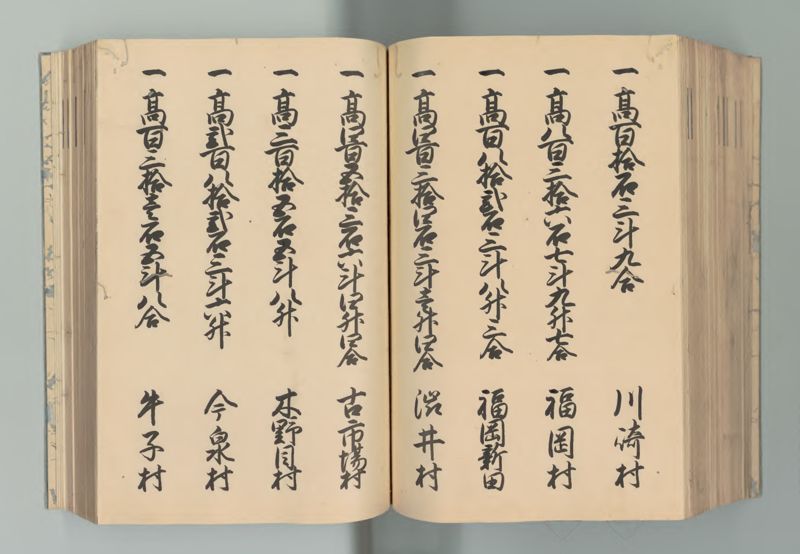 一 高百拾石三斗九合 川崎村
一 高八百三拾六石七斗九升七合 福岡村
一 高百八拾弐石三斗八升三合 福岡新田
一 高四百三拾四石三斗壱升四合 渋井村
一 高四百五拾三石六斗四升四合 古市場村
一 高三百拾五石五斗八升 木野目村
一 高弐百八拾弐石三斗六升 今泉村
一 高百三拾壱石五斗八合 牛子村